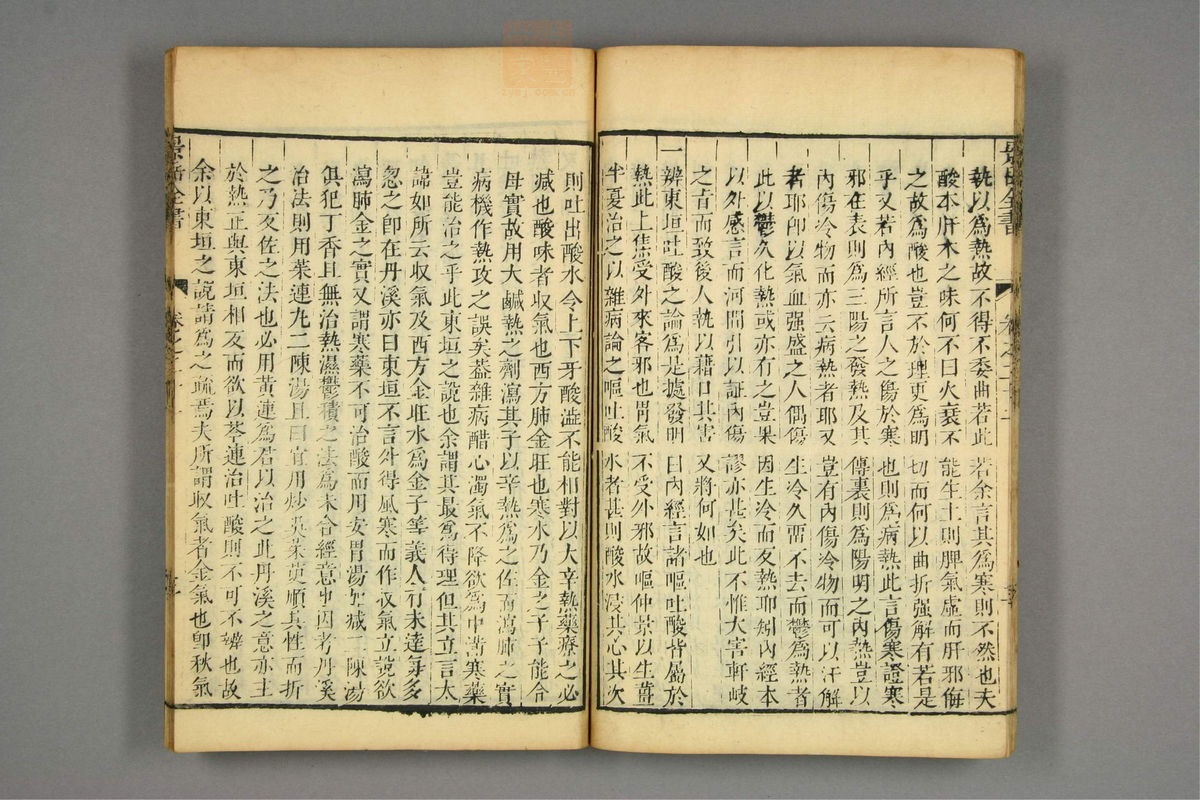 執以爲熱故不得不委曲若此若余言其爲寒則不然也夫
酸本肝木之味何不曰火衰不能生土則脾氣虛而肝邪侮
之故爲酸也豈不於理更爲明切而何以曲折强解有若是
乎又若內經所言人之傷於寒也則爲病熱此言傷寒證寒
邪在表則爲三陽之發熱及其傳裏則爲陽明之內熱豈以
內傷冷物而亦云病熱者耶又豈有內傷冷物而可以汗解
者耶卽以氣血强盛之人偶傷生冷久畱不去而鬱爲熱者
此以鬱久化熱或亦有之豈果因生冷而反熱耶矧內經本
以外感言而河間引以証內傷謬亦甚矣此不惟大害軒岐
之肯而致後人執以藉口其害又將何如也
一辨東垣吐酸之論爲是據發明曰內經言諸嘔吐酸皆屬於
熱此上焦受外來客邪也胃氣不受外邪故嘔仲景以生薑
半夏治之以雜病論之嘔吐酸水者甚則酸水浸其心其次
則吐出酸水令上下牙酸澁不能相對以大辛熱藥療之必
减也酸味者收氣也西方肺金旺也寒水乃金之子子能令
母實故用大鹹熱之劑瀉其子以辛熱爲之佐而瀉肺之實
病機作熱攻之誤矣蓋雜病醋心濁氣不降欲爲中滿寒藥
豈能治之乎此東垣之說也余謂其最爲得理但其立言太
諱如所云收氣及西方金旺水爲金子等義人有未達每多
忽之卽在丹溪亦曰東垣不言外得風寒而作收氣立說欲
瀉肺金之實又謂寒藥不可治酸而用安胃湯加减二陳湯
俱犯丁香且無治熱濕鬱積之法爲未合經意也因考丹溪
治法則用茱連丸二陳湯且曰宜用炒吳茱萸順其性而折
之乃反佐之法也必用黃連爲君以治之此丹溪之意亦主
於熱正與東垣相反而欲以芩連治吐酸則不可不辨也故
余以東垣之說請爲之疏焉夫所謂收氣者金氣也卽秋氣
景岳全書
卷之二十一